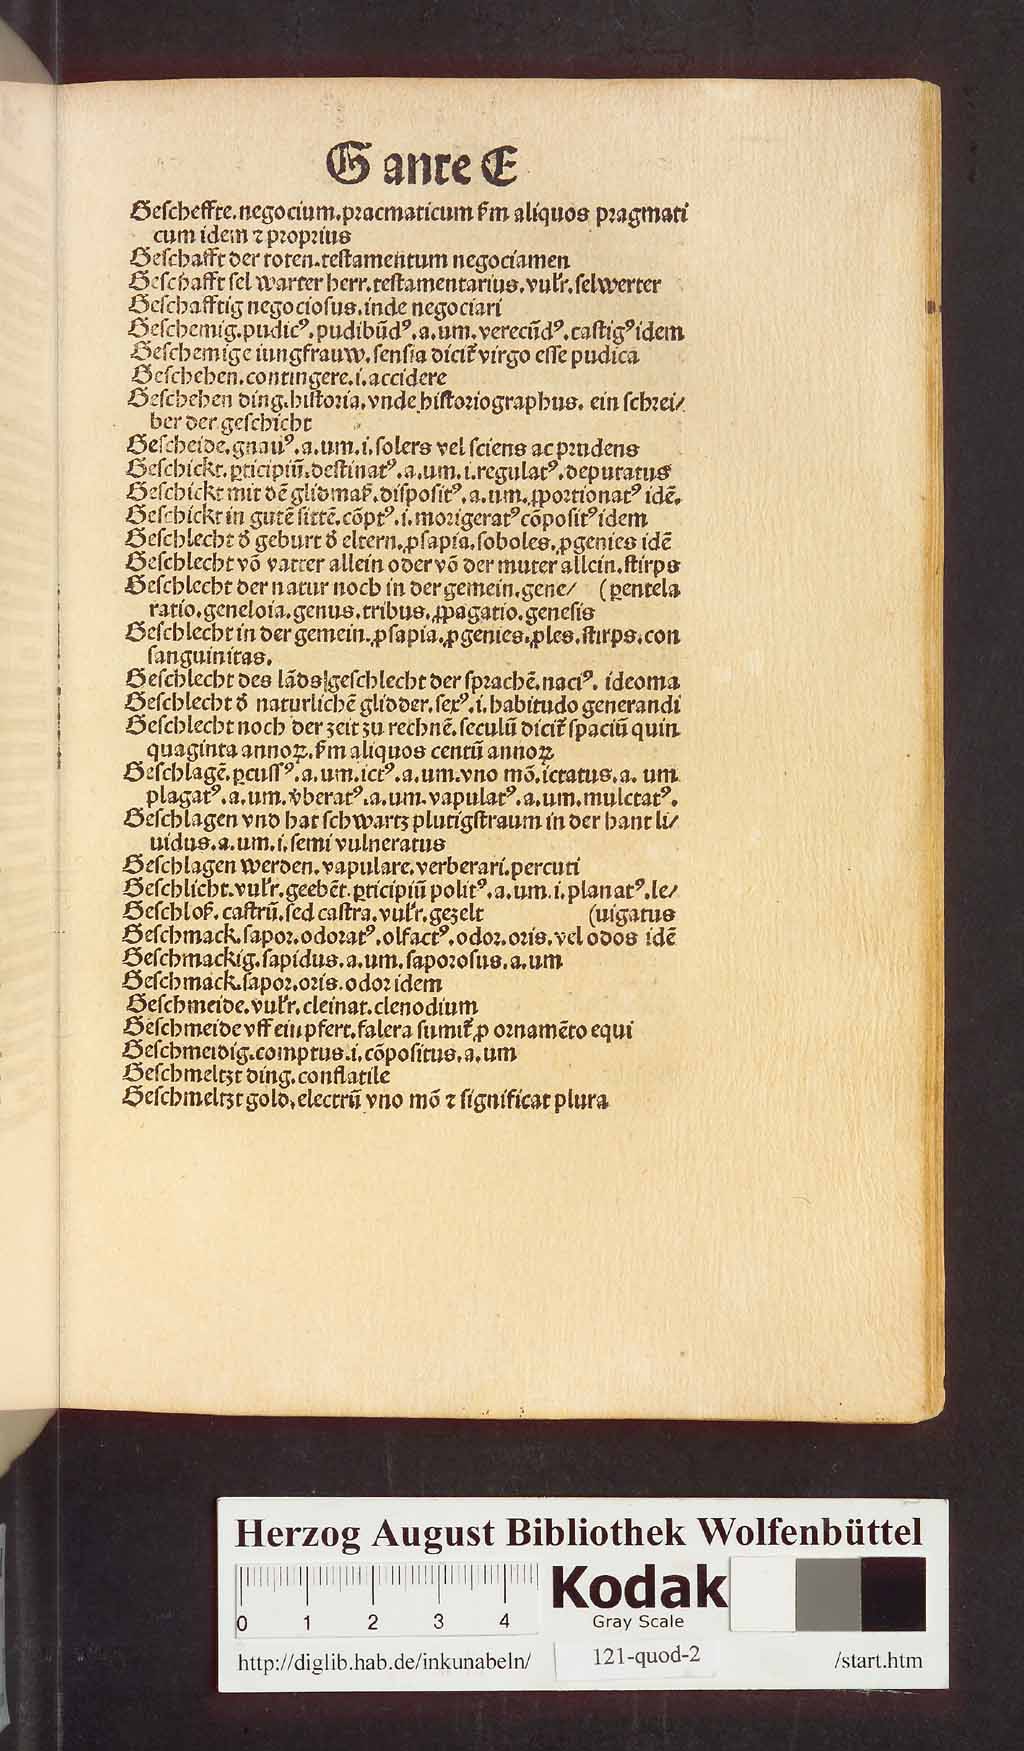 G ante E
Gescheffte.negocium.pracmaticum ẜm aliquos pragmati
cum idem ⁊ proprius
Geschafft der toten.testamentum negociamen
Geschafft sel warter herr.testamentarius.vulr̃.selwerter
Geschafftig negociosus.inde negociari
Geschemig.pudicꝰ.pudibũdꝰ.a.um.verecũdꝰ.castigꝰ idem
Geschemige iungfrauw.sensia dicit̃ virgo esse pudica
Geschehen.contingere.i.accidere
Geschehen ding.historia.vnde historiographus. ein schrei/
ber der geschicht
Gescheide.gnauꝰ.a.um.i.solers vel sciens ac prudens
Geschickt.ꝑticipiũ.destinatꝰ.a.um.i.regulatꝰ.deputatus
Geschickt mit dẽ glidmaß.dispositꝰ.a.um.ꝓportionatꝰ idẽ.
Geschickt in gutẽ sittẽ.cõptꝰ.i.morigeratꝰ cõpositꝰ idem
Geschlecht d̃ geburt d̃ eltern.ꝓsapia.soboles.ꝓgenies idẽ
Geschlecht võ vatter allein oder võ der muter allein.stirps
Geschlecht der natur noch in der gemein.gene/ (ꝑentela
ratio.geneloia.genus.tribus.ꝓpagatio.genesis
Geschlecht in der gemein.ꝓsapia.ꝓgenies.ꝓles.stirps.con
sanguinitas.
Geschlecht des lãds|geschlecht der sprachẽ.naciꝰ. ideoma
Geschlecht d̃ naturlichẽ glidder.sexꝰ.i.habitudo generandi
Geschlecht noch der zeit zu rechnẽ.seculũ dicit̃ spaciũ quin
quaginta annoꝝ.ẜm aliquos centũ annoꝝ
Geschlagẽ.ꝑcussꝰ.a.um.ictꝰ.a.um.vno mõ.ictatus.a. um
plagatꝰ.a.um.v̾beratꝰ.a.um.vapulatꝰ.a.um.mulctatꝰ.
Geschlagen vnd hat schwartz plutigstraum in der hant li/
uidus.a.um.i.semi vulneratus
Geschlagen werden.vapulare.verberari.percuti
Geschlicht.vulr̃.geebẽt.ꝑticipiũ politꝰ.a.um.i.planatꝰ.le/
Geschloß. castrũ.sed castra.vulr̃.gezelt (uigatus
Geschmack.sapor.odoratꝰ.olfactꝰ.odor.oris.vel odos idẽ
Geschmackig.sapidus.a.um.saporosus.a.um
Geschmack.sapor.oris.odor idem
Geschmeide.vulr̃.cleinat.clenodium
Geschmeide vff ein pfert.falera sumit̃ ꝓ ornamẽto equi
Geschmeidig.comptus.i.cõpositus.a.um
Geschmeltzt ding.conflatile
Geschmeltzt gold.electrũ vno mõ ⁊ significat plura
Herzog August Bibliothek Wolfenbüttel
0 1 2 3 4
Kodak
Gray Scale
http://diglib.hab.de/inkunabeln/ 121-quod-2 /start.htm